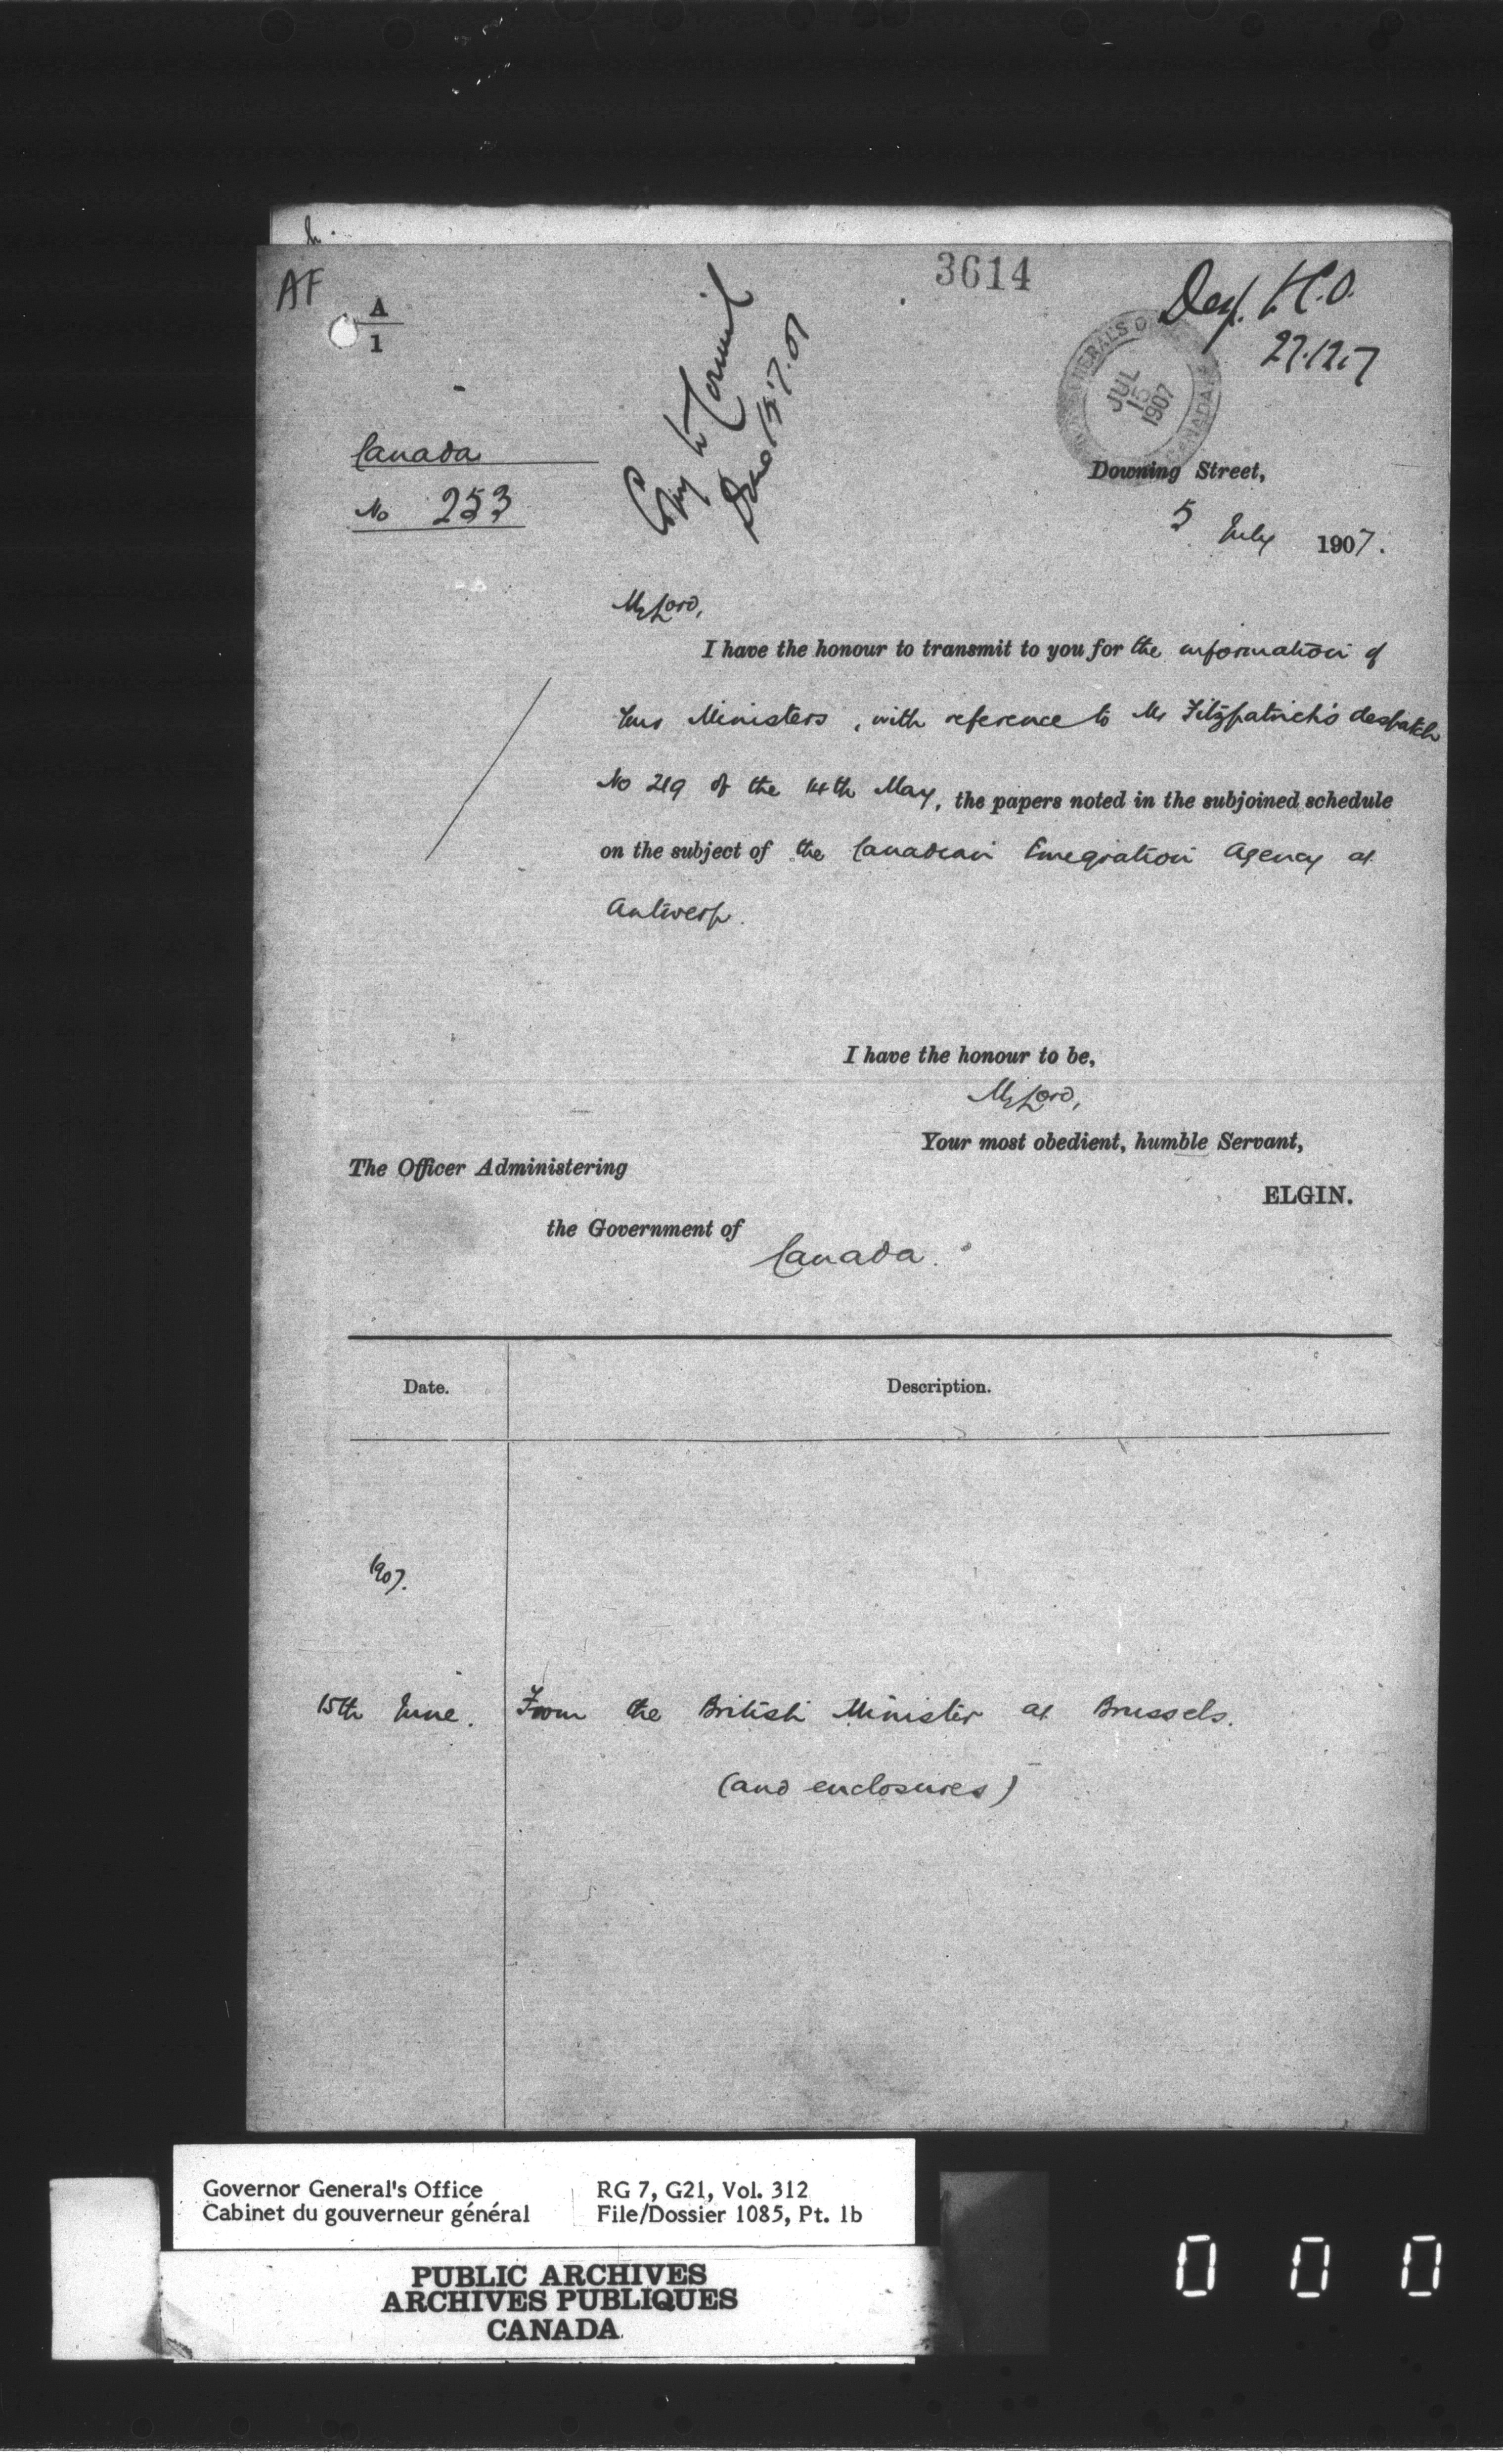 3614
AF
A
1
Desp. H.O.
27.12.7
Copy to Council
15.7.07
GENERAL'S O
JUL
15
1907
CANADA
Canada
No 253
Downing Street,
5 July 1907.
My Lord,
I have the honour to transmit to you for the information of
your Ministers, with reference to Mr Fitzpatrick's despatch
No 219 of the 14th May, the papers noted in the subjoined schedule
on the subject of the Canadian Emigration Agency at
Antwerp.
I have the honour to be,
My Lord,
Your most obedient, humble Servant,
ELGIN.
The Officer Administering
the Government of
Canada.
Date. Description.
1907.
15th June. From the British Minister at Brussels.
(and enclosures)
Governor General's Office RG 7, G21, Vol. 312
Cabinet du gouverneur général File/Dossier 1085, Pt. 1b
PUBLIC ARCHIVES
ARCHIVES PUBLIQUES
CANADA
0 0 0